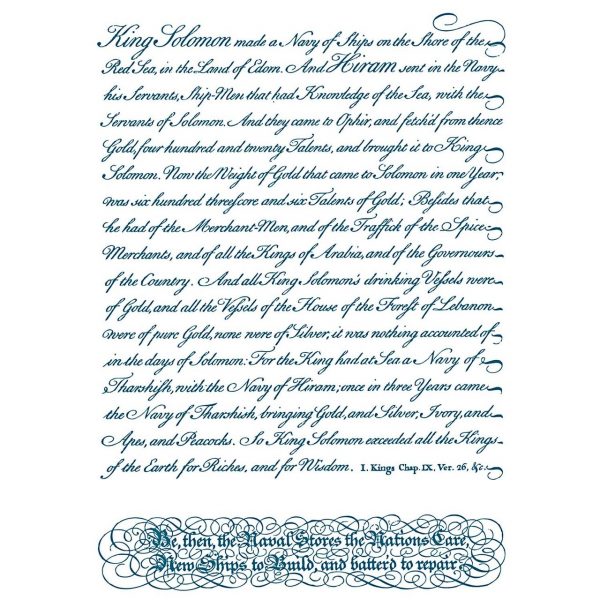 King Solomon made a Navy of Ships on the Shore of the
Red Sea, in the Land of Edom. And Hiram sent in the Navy
his Servants, Ship-Men that had Knowledge of the Sea, with the
Servants of Solomon. And they came to Ophir, and fetch'd from thence
Gold, four hundred and twenty Talents, and brought it to King
Solomon. Now the Weight of Gold that came to Solomon in one Year,
was six hundred threeſcore and six Talents of Gold; Beſides that
he had of the Merchant-Men, and of the Traffick of the Spice
Merchants, and of all the Kings of Arabia, and of the Governours
of the Country. And all King Solomon's drinking Veſsels were
of Gold, and all the Veſsels of the House of the Foreſt of Lebanon
were of pure Gold, none were of Silver, it was nothing accounted of
in the days of Solomon: For the King had at Sea a Navy of
Tharshiſh, with the Navy of Hiram; once in three Years came
the Navy of Tharshish, bringing Gold, and Silver, Ivory, and
Apes, and Peacocks. So King Solomon exceeded all the Kings
of the Earth for Riches, and for Wisdom. I. Kings Chap. IX. Ver. 26, &c.
Be, then, the Naval Stores the Nations Care,
New Ships to Build, and batter'd to repair.